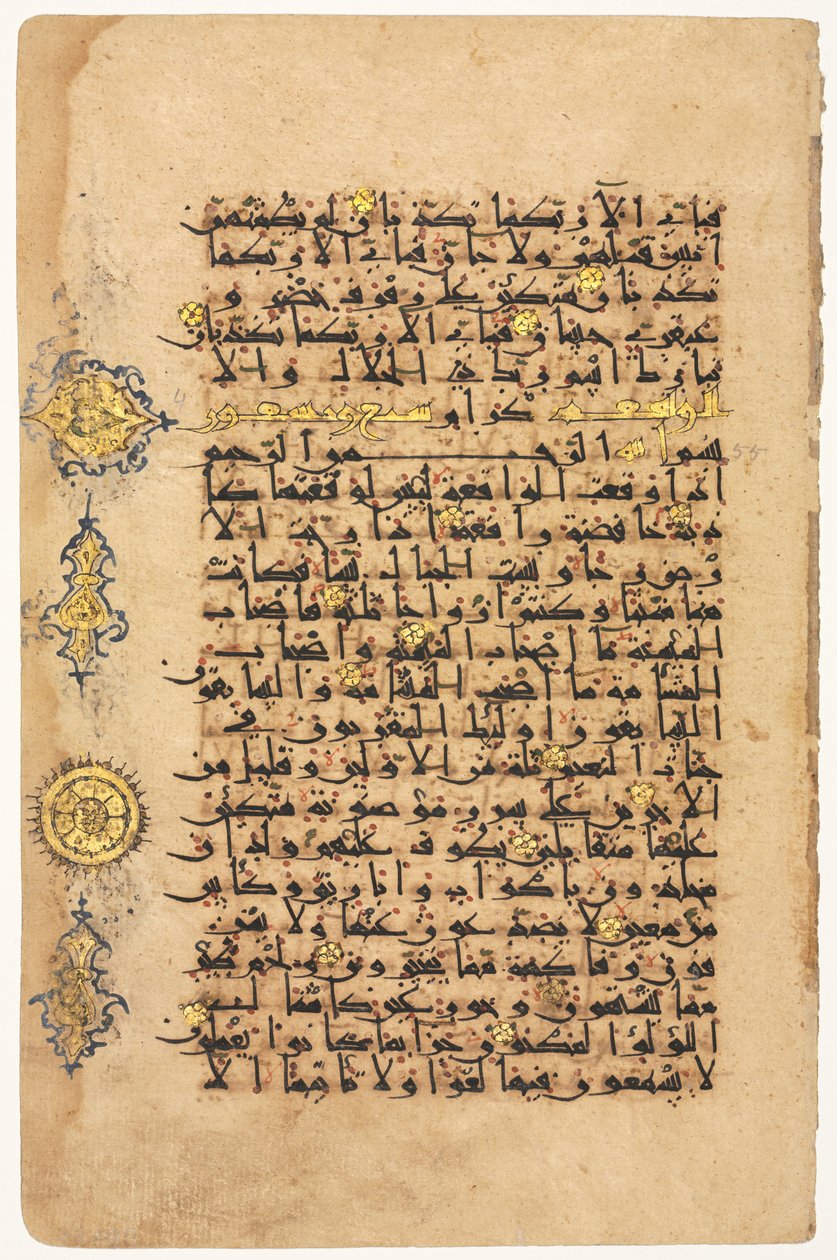 فبأي آلاء ربكما تكذبان لم يطمثهن
إنس قبلهم ولا جان فبأي آلاء ربكما
تكذبان متكئين على رفرف خضر و
عبقري حسان فبأي آلاء ربكما تكذبان
تبارك اسم ربك ذي الجلال والا
الواقعة كرام سبع وتسعون
بسم الله الرحمن الرحيم
إذا وقعت الواقعة ليس لوقعتها كا
ذبة خافضة رافعة إذا رجت الا
رض رجا وبست الجبال بسا فكانت
هباء منبثا وكنتم أزواجا ثلثة فأصحاب
الميمنة ما أصحاب الميمنة وأصحاب
المشأمة ما أصحب المشأمة والسابقون
السابقون أولئك المقربون في
جنات النعيم ثلة من الأولين وقليل من
الآخرين على سرر موضونة متكئين
عليها متقابلين يطوف عليهم ولدان
مخلدون بأكواب وأباريق وكأس
من معين لا يصدعون عنها ولا ينز
فون وفاكهة مما يتخيرون ولحم طير
مما يشتهون وحور عين كأمثال
اللؤلؤ المكنون جزاء بما كانوا يعملون
لا يسمعون فيها لغوا ولا تأثيما إلا